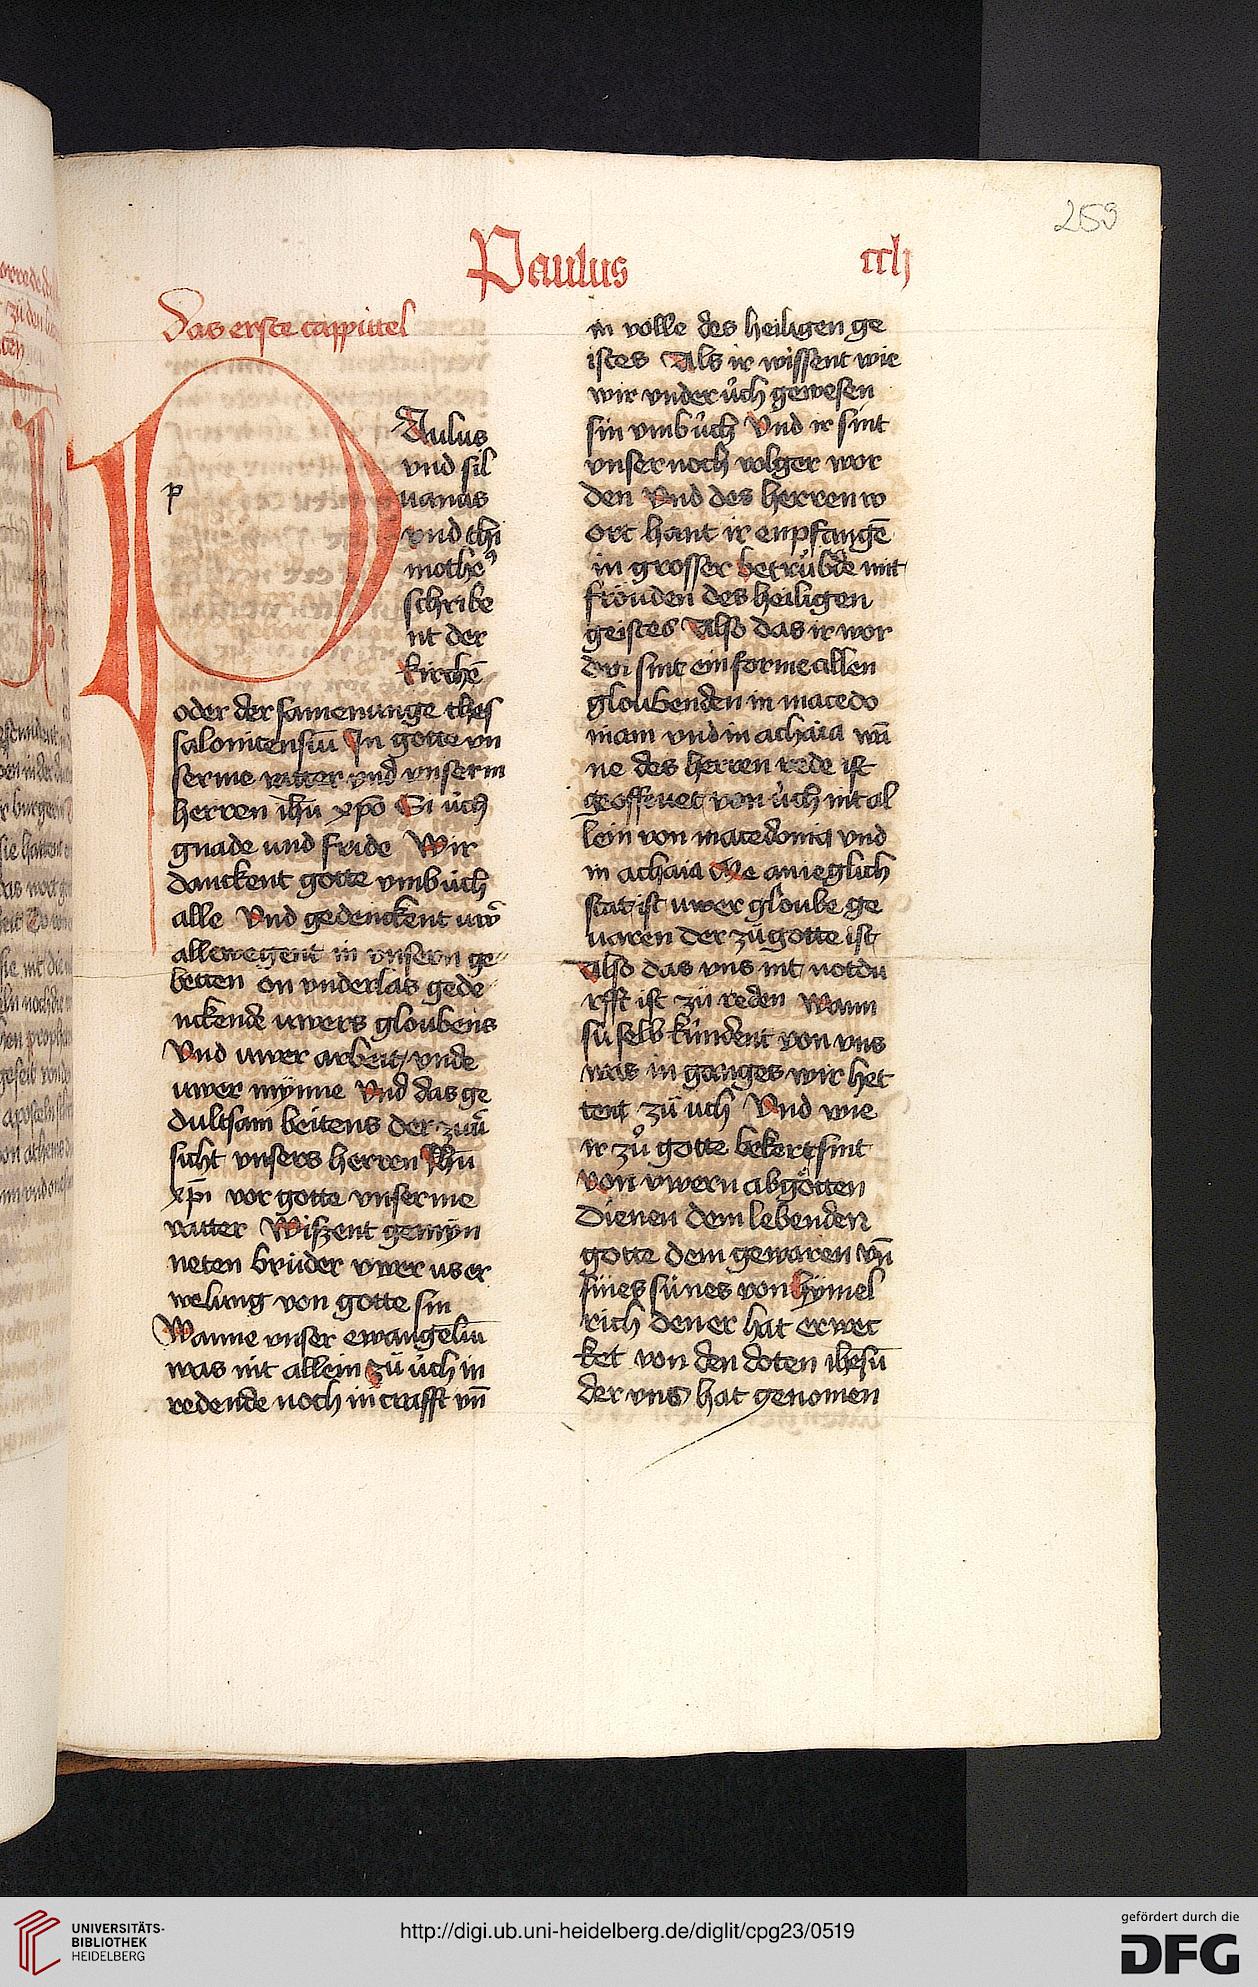 259
Paulus
ccli
Das erste cappittel
p
PAulus
vnd sil
uanus
vnd thi
motheꝰ
schribe
nt der
kirchē
oder der samenunge thes
salonicensiū In gotte vn
serme vatter vnd vnserm
herren ihū xpō Si v̈ch
gnade vnd fride Wir
danckent gotte vmb v̈ch
alle Vnd gedenckent uw̄
allewegent in vnsern ge
betten on vnderlas gede
nckende uwers gloubens
Vnd uwer arbeit vnde
uwer mynne Vnd das ge
dultsam beitens der zuū
sicht vnsers herren Jhū
xpī vor gotte vnserme
vatter Wißent gemyn
neten brüder vwer us er
welung von gotte sin
Wanne vnser ewangeliū
was nit allein zü v̈ch in
redende noch in crafft vn̄
in volle des heiligen ge
istes Als ir wissent wie
wir vnder v̈ch gewesen
sin vmb v̈ch Vnd ir sint
vnser noch volger wor
den Vnd des herren w
ort hant ir enpfangē
in grosser betrübde mit
fröuden des heiligen
geistes Also das ir wor
den sint ein forme allen
gloubenden in macedo
niam vnd in achaia wā
ne des herren rede ist
geoffenet von v̈ch nit al
lein von macedonia vnd
in achaia Me an ieglich
stat ist uwer gloube ge
uaren der zü gotte ist
Also das vns nit notdu
rfft ist zü reden Wann
sü selb kündent von vns
was in ganges wir het
tent zü üch Vnd wie
ir zů gotte bekert sint
von vwern abgötten
Dienen dem lebenden
gotte dem gewaren vn̄
sines sünes von hymel
rich den er hat erwec
ket von den doten ihesū
der vns hat genomen
UNIVERSITÄTS-
BIBLIOTHEK
HEIDELBERG
http://digi.ub.uni-heidelberg.de/diglit/cpg23/0519
gefördert durch die
DFG